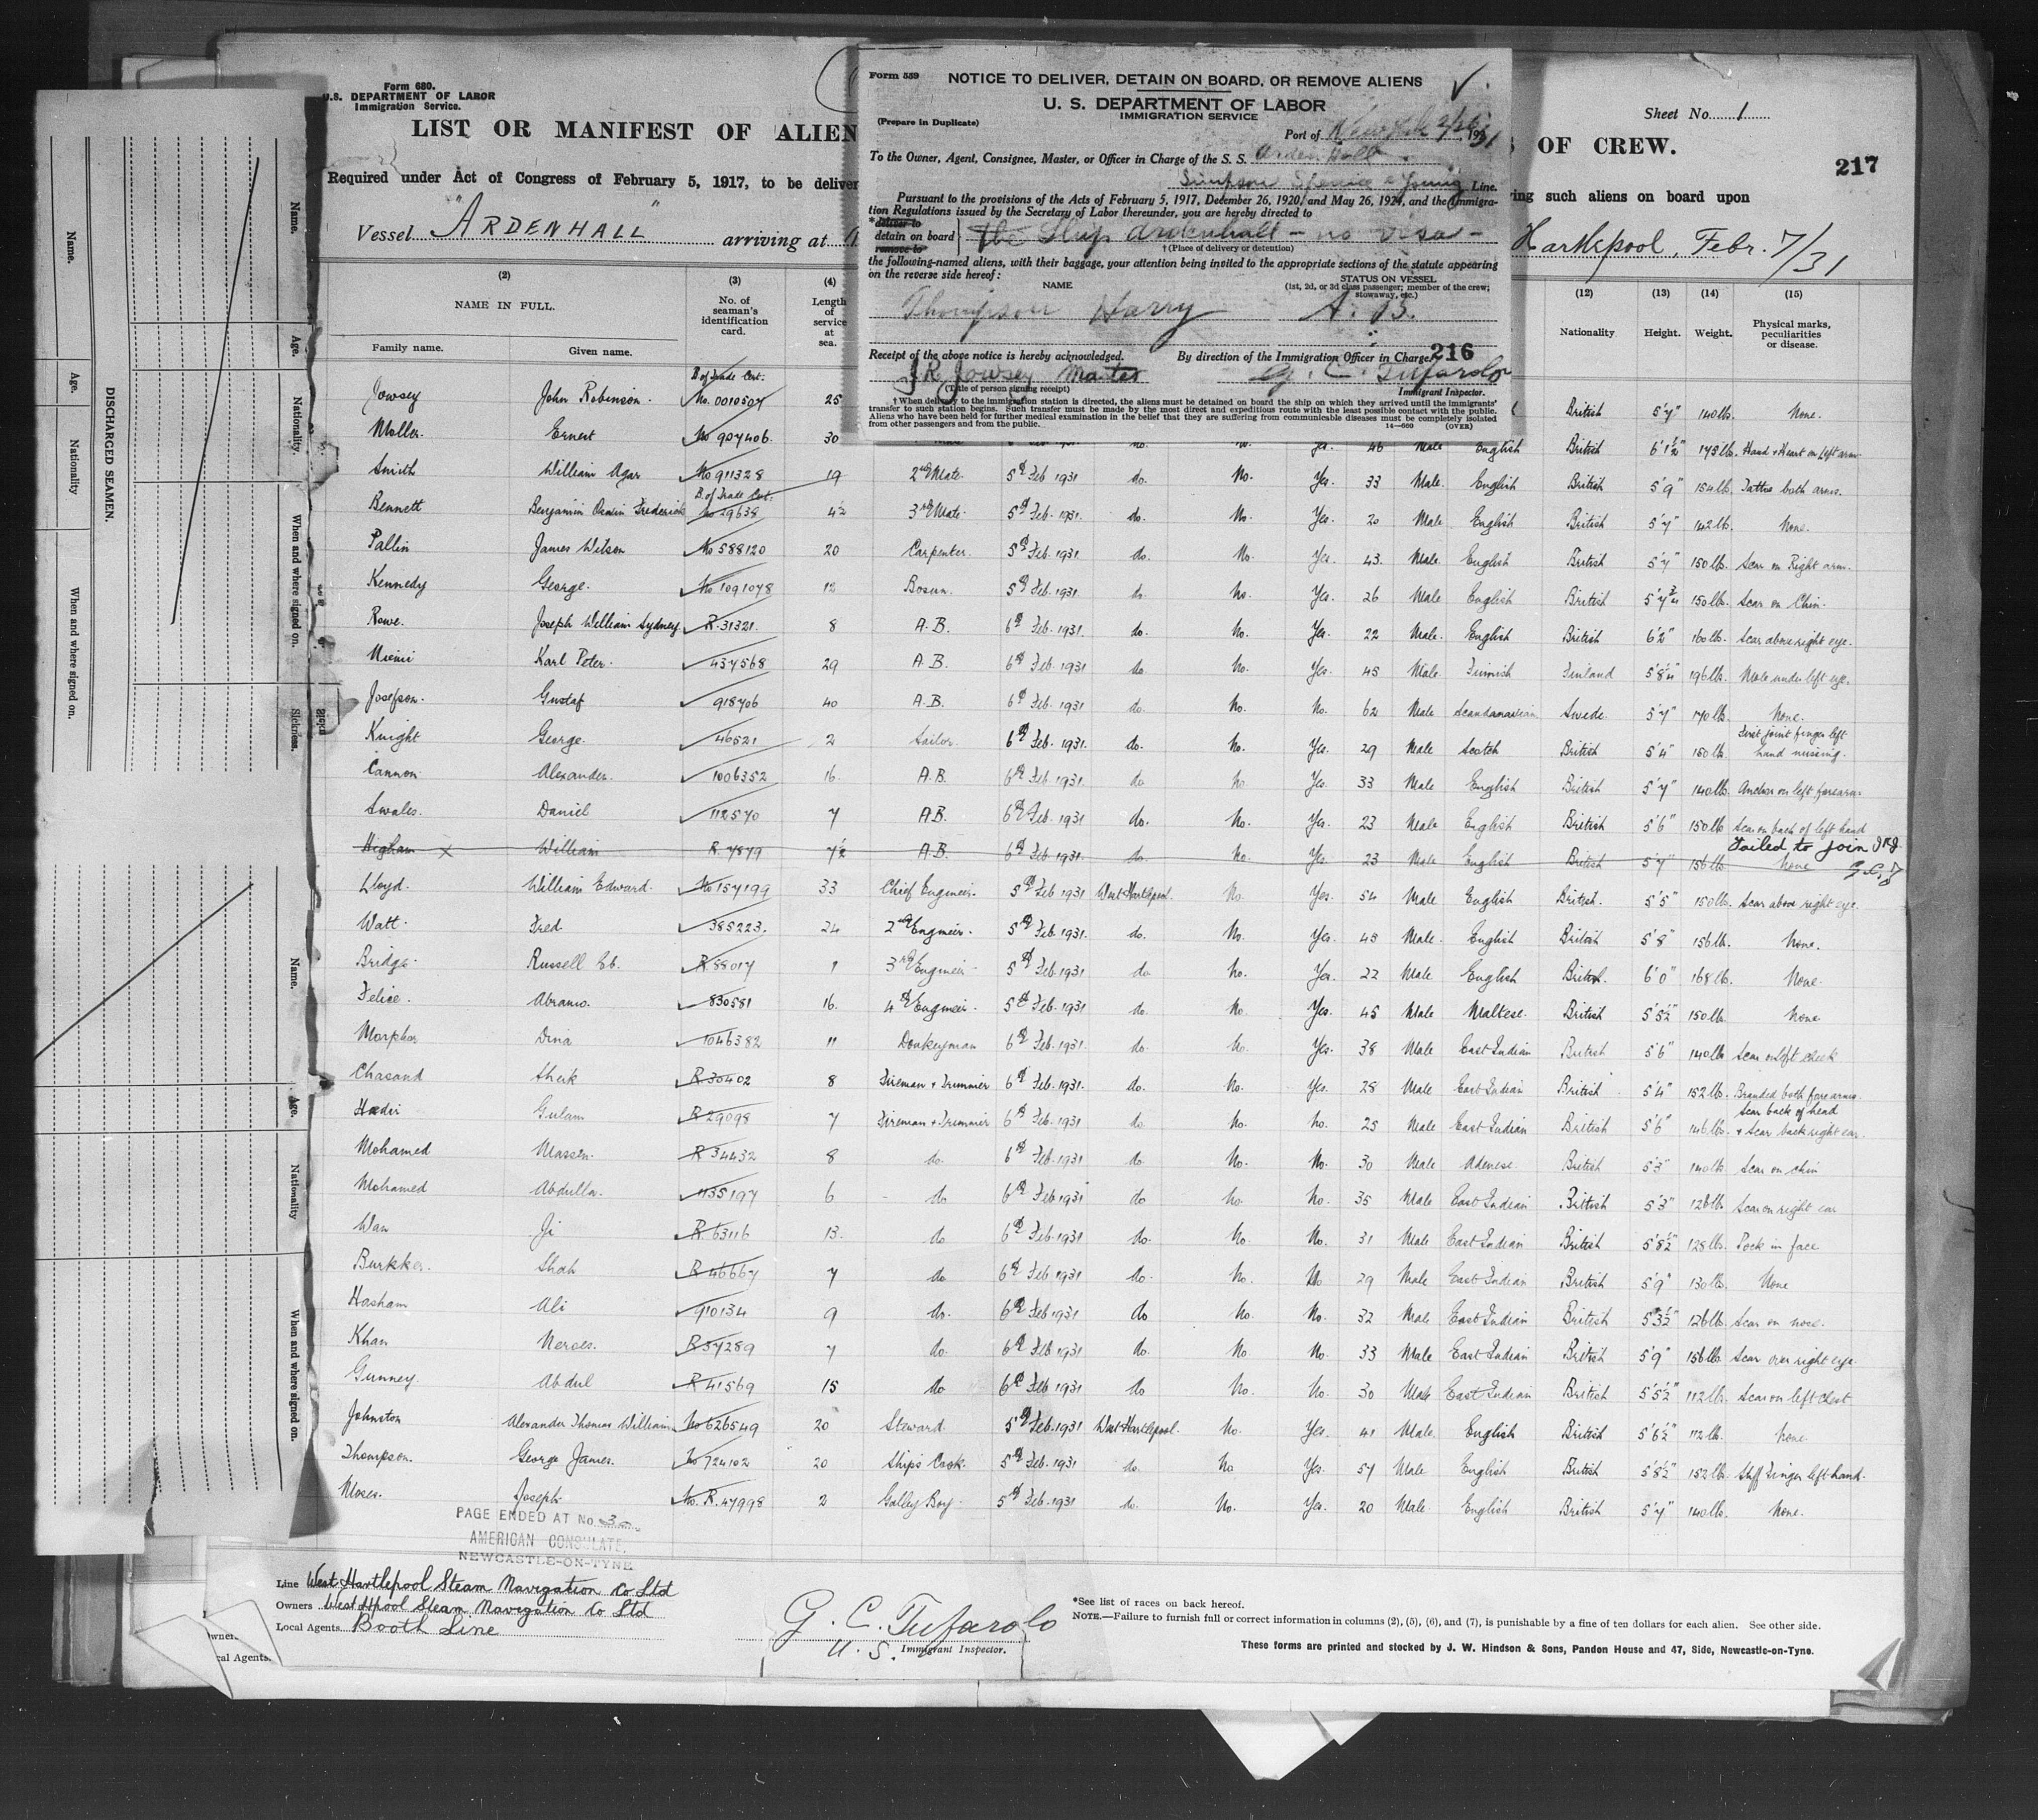 Form 680.
U.S. DEPARTMENT OF LABOR
Immigration Service.
LIST OR MANIFEST OF ALIEN
Required under Act of Congress of February 5, 1917, to be deliver
Vessel "ARDENHALL" arriving at
Form 559
NOTICE TO DELIVER, DETAIN ON BOARD, OR REMOVE ALIENS
U. S. DEPARTMENT OF LABOR
IMMIGRATION SERVICE
(Prepare in Duplicate)
Port of New York 2/26 1931
To the Owner, Agent, Consignee, Master, or Officer in Charge of the S. S. Ardenhall
Simpson Spence & Young Line.
Pursuant to the provisions of the Acts of February 5, 1917, December 26, 1920, and May 26, 1924, and the Immigra-
tion Regulations issued by the Secretary of Labor thereunder, you are hereby directed to
*deliver to
detain on board
remove to
the Ship Ardenhall - no visa -
†(Place of delivery or detention)
the following-named aliens, with their baggage, your attention being invited to the appropriate sections of the statute appearing
on the reverse side hereof:
NAME
STATUS ON VESSEL
(1st, 2d, or 3d class passenger; member of the crew;
stowaway, etc.)
Thompson Harry A. B.
216
Receipt of the above notice is hereby acknowledged. By direction of the Immigration Officer in Charge.
J R Jowsey Master G. C. Tufarolo
(Title of person signing receipt) Immigrant Inspector.
†When delivery to the immigration station is directed, the aliens must be detained on board the ship on which they arrived until the immigrants'
transfer to such station begins. Such transfer must be made by the most direct and expeditious route with the least possible contact with the public.
Aliens who have been held for further medical examination in the belief that they are suffering from communicable diseases must be completely isolated
from other passengers and from the public. 14—660 (OVER)
Sheet No. 1
OF CREW.
217
ing such aliens on board upon
Hartlepool, Febr. 7/31
(2) (3) (4) (12) (13) (14) (15)
NAME IN FULL.
Family name. Given name.
No. of seaman's identification card.
Length of service at sea.
Nationality Height. Weight. Physical marks, peculiarities or disease.
B of Trade Cert.
Jowsey John Robinson. No. 0010507 25 British 5'7" 140 lb. None.
Moller. Ernest No 907406. 30 No. Yes. 46 Male English British 6'1½" 175 lb. Hand & Heart on left arm.
Smith William Agar No 911328 19 2nd Mate. 5th Feb 1931 do. No. Yes. 33 Male. English British 5'9" 154 lb. Tattoo both arms.
B. of Trade Cert.
Bennett Benjamin Frederick No 29638 4½ 3rd Mate. 5th Feb. 1931. do. No. Yes. 20 Male English British 5'7" 142 lb. None.
Pallin James Wilson No 588120 20 Carpenter. 5th Feb. 1931. do. No. Yes. 43. Male English British 5'7" 150 lb. Scar on Right arm.
Kennedy George. No 1091078 12 Bosun. 5th Feb. 1931. do. No. Yes. 26 Male English British 5'7¾" 150 lb. Scar on Chin.
Rowe. Joseph William Sydney. R. 31321. 8 A.B. 6th Feb. 1931. do. No. Yes. 22 Male. English British 6'2" 160 lb. Scar above right eye.
Niemi Karl Peter. 437568 29 A.B. 6th Feb. 1931 do. No. Yes. 45 Male Finnish Finland 5'8½" 196 lb. Mole under left eye.
Josefson. Gustaf 918706 40 A.B. 6th Feb. 1931 do. No. No. 62 Male Scandanavian Swede. 5'7" 170 lb. None.
First joint finger left
Knight George. 46521 2 Sailor. 6th Feb. 1931. do. No. Yes. 29 Male Scotch British 5'4" 150 lb. hand missing.
Cannon Alexander. 1006352 16. A.B. 6th Feb. 1931. do No. Yes. 33 Male English British 5'7" 140 lb. Anchor on left forearm.
Swales. Daniel 112570 7 A.B. 6th Feb. 1931 do. No. Yes. 23 Male English British 5'6" 150 lb. Scar on back of left hand
Failed to join JRJ.
Higham x William R. 7879 7½ A.B. 6th Feb. 1931 do. No. Yes. 23 Male English British 5'7" 156 lb. None G.C.T
Lloyd. William Edward. No 157199 33 Chief Engineer. 5th Feb 1931 West Hartlepool. No. Yes. 54 Male English British. 5'5" 150 lb. Scar above right eye.
Watt. Fred 385223. 24 2nd Engineer. 5th Feb. 1931. do. No. Yes. 45 Male. English British 5'8" 156 lb. None.
Bridge. Russell R. 88017 1 3rd Engineer 5th Feb. 1931 do No. Yes. 22 Male English British. 6'0" 168 lb. None.
Felice. Abramo. 830581 16. 4th Engineer. 5th Feb. 1931 do. No. Yes. 45 Male Maltese. British 5'5½" 150 lb. None
Morphar Dina 1046382 11 Donkeyman 6th Feb. 1931. do. No. Yes. 38 Male East Indian British 5'6" 140 lb. Scar on left cheek
Chasand Sherk R 30402 8 Fireman & Trimmer 6th Feb. 1931. do. No. Yes. 28 Male East Indian British 5'4" 152 lb. Branded both forearms.
Scar back of head
Haedri Gulam R 29098 7 Fireman & Trimmer 6th Feb. 1931. do. No. No. 25 Male East Indian British 5'6" 146 lb. & Scar back right ear.
Mohamed Nassen. R 34432 8 do. 6th Feb. 1931 do. No. No. 30 Male Adenese British 5'3" 140 lb Scar on chin
Mohamed Abdulla. 1135197 6 do 6th Feb 1931 do No. No. 35 Male East Indian British 5'3" 126 lb. Scar on right ear
Wan Ji R. 63116 13. do 6th Feb. 1931 do. No. No. 31 Male East Indian British 5'8½" 128 lb. Pock in face
Burkker. Shah R 46667 7 do 6th Feb. 1931 do. No. No. 29 Male East Indian British 5'9" 130 lb. None
Hasham Ali 910134 9 do. 6th Feb 1931 do No. No. 32 Male East Indian British 5'3½" 126 lb. Scar on nose.
Khan Neroes. R 57289 7 do. 6th Feb 1931 do. No. No. 33 Male East Indian British 5'9" 156 lb. Scar over right eye.
Gunney. Abdul R 41569 15 do 6th Feb 1931 do No. No. 30 Male East Indian British 5'5½" 112 lb. Scar on left chest
Johnston Alexander Thomas William No 626549 20 Steward 5th Feb. 1931 West Hartlepool. No. Yes. 41 Male. English British 5'6½" 112 lb. None
Thompson. George James. No 724102 20 Ships Cook. 5th Feb. 1931 do. No Yes. 57 Male English British 5'8½" 152 lb. Stiff Finger left hand.
Moses. Joseph No. R. 47998 2 Galley Boy. 5th Feb. 1931 do. No. Yes. 20 Male. English British 5'7" 140 lb. None.
PAGE ENDED AT No 30
AMERICAN CONSULATE.
NEWCASTLE-ON-TYNE
Line West Hartlepool Steam Navigation Co Ltd
Owners West Hpool Steam Navigation Co Ltd
Local Agents. Booth Line
G. C. Tufarolo
U. S. Immigrant Inspector.
*See list of races on back hereof.
NOTE.—Failure to furnish full or correct information in columns (2), (5), (6), and (7), is punishable by a fine of ten dollars for each alien. See other side.
These forms are printed and stocked by J. W. Hindson & Sons, Pandon House and 47, Side, Newcastle-on-Tyne.
DISCHARGED SEAMEN.
Name.
Age.
Nationality
When and where signed on.
Name.
Age.
Nationality
When and where signed on.
Sickness.
Name.
Age.
Nationality
When and where signed on.
Owners
cal Agents.